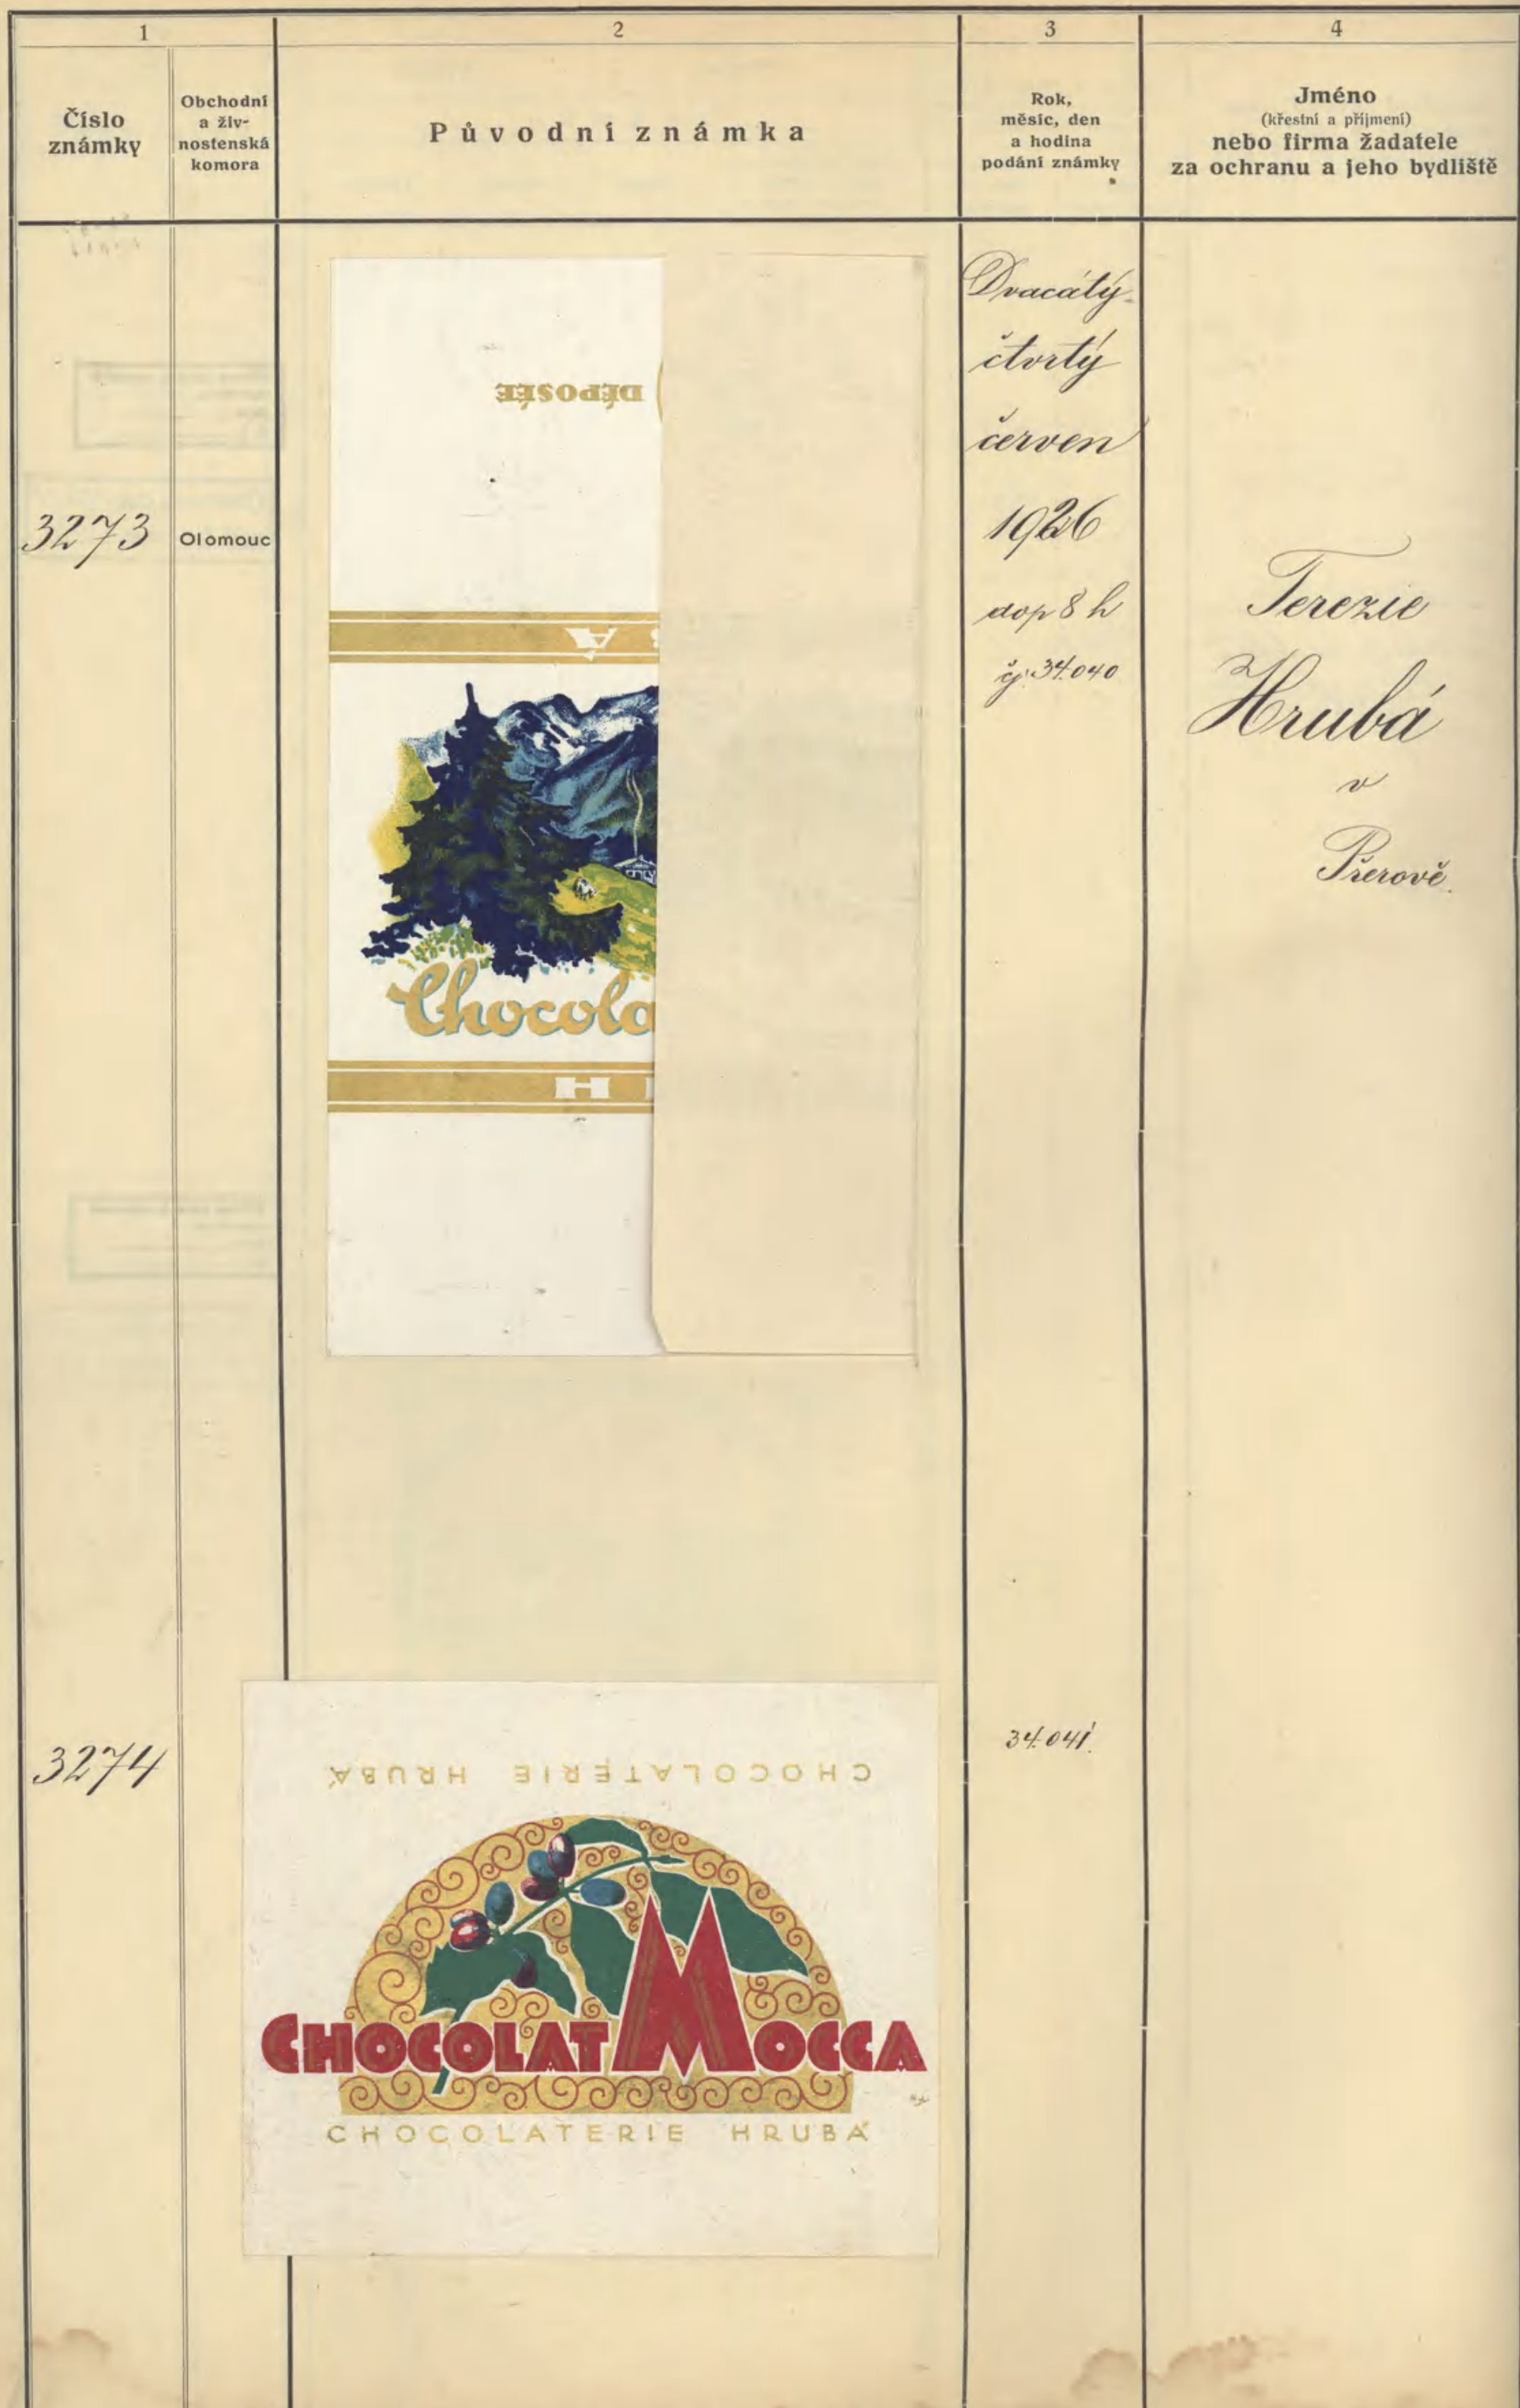 1
2
3
4
Číslo
známky
Obchodní
a živ-
nostenská
komora
Původní známka
Rok,
měsíc, den
a hodina
podání známky
Jméno
(křestní a příjmení)
nebo firma žadatele
za ochranu a jeho bydliště
3273
Olomouc
DÉPOSÉE
Á
Chocola
H
Dvacátý
čtvrtý
červen
1926
dop 8 h
čj. 34.040
Terezie
Hrubá
v
Přerově.
3274
CHOCOLATERIE HRUBÁ
CHOCOLAT MOCCA
CHOCOLATERIE HRUBÁ
34.041.